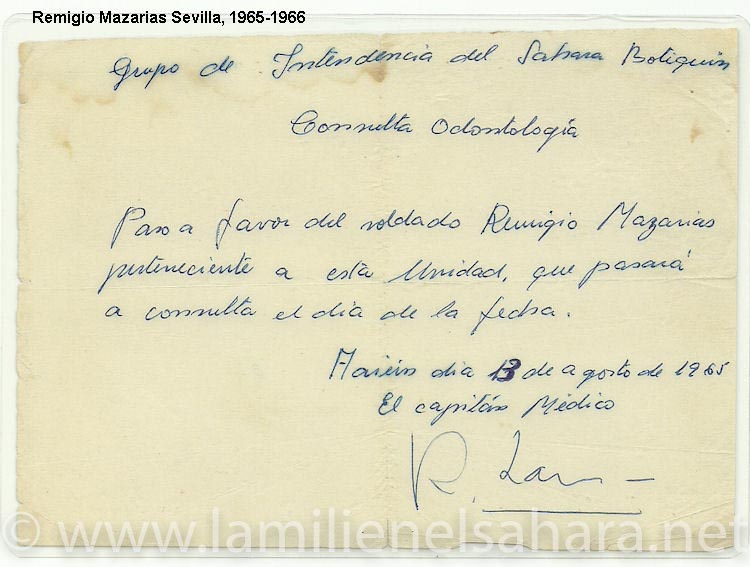 Remigio Mazarias Sevilla, 1965-1966
Grupo de Intendencia del Sahara Botiquin
Consulta Odontología
Paso a favor del soldado Remigio Mazarias
perteneciente a esta Unidad, que pasará
a consulta el día de la fecha.
dia 13 de agosto de 1965
El capitán Médico
R.
© www.lamilienelsahara.net